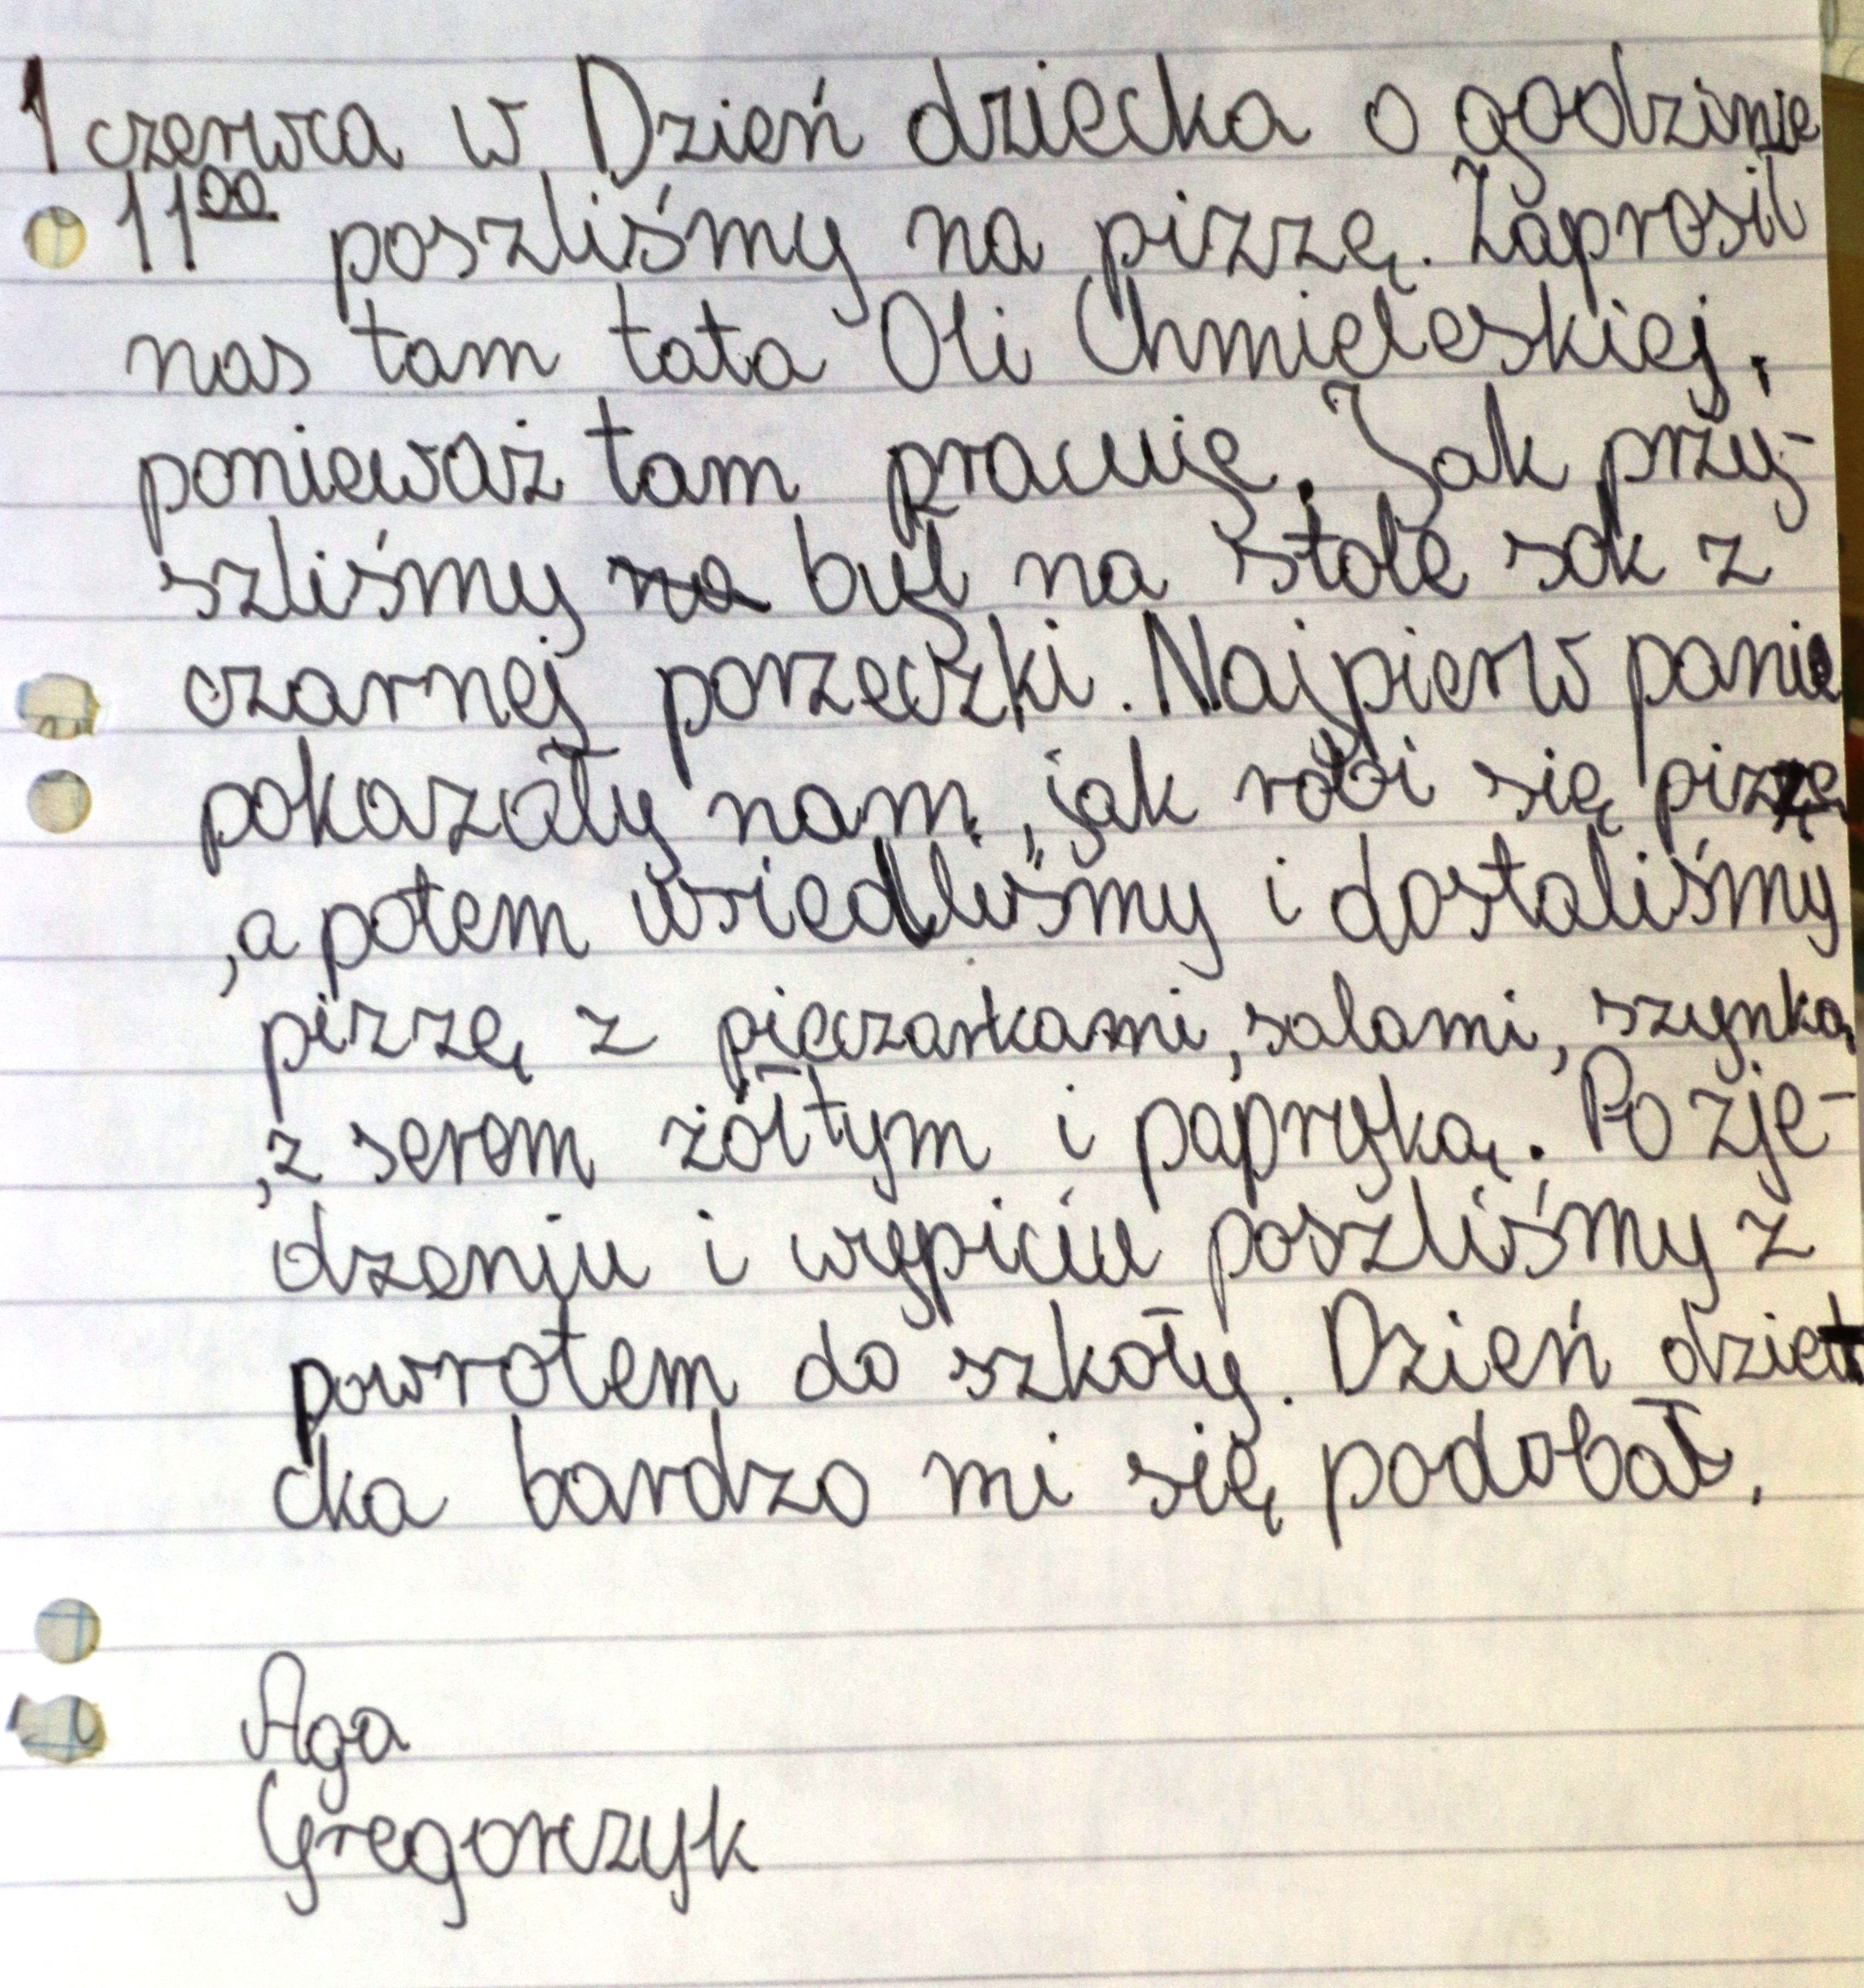 1 czerwca w Dzień dziecka o godzinie
11⁰⁰ poszliśmy na pizzę. Zaprosił
nas tam tata Oli Chmieleskiej,
ponieważ tam pracuje. Jak przy-
szliśmy ~~na~~ był na stole sok z
czarnej porzeczki. Najpierw panie
pokazały nam, jak robi się pizzę
, a potem usiedliśmy i dostaliśmy
pizzę z pieczarkami, salami, szynką
, z serem żółtym i papryką. Po zje-
dzeniu i wypiciu poszliśmy z
powrotem do szkoły. Dzień dzie-
cka bardzo mi się podobał.
Aga
Gregorczyk